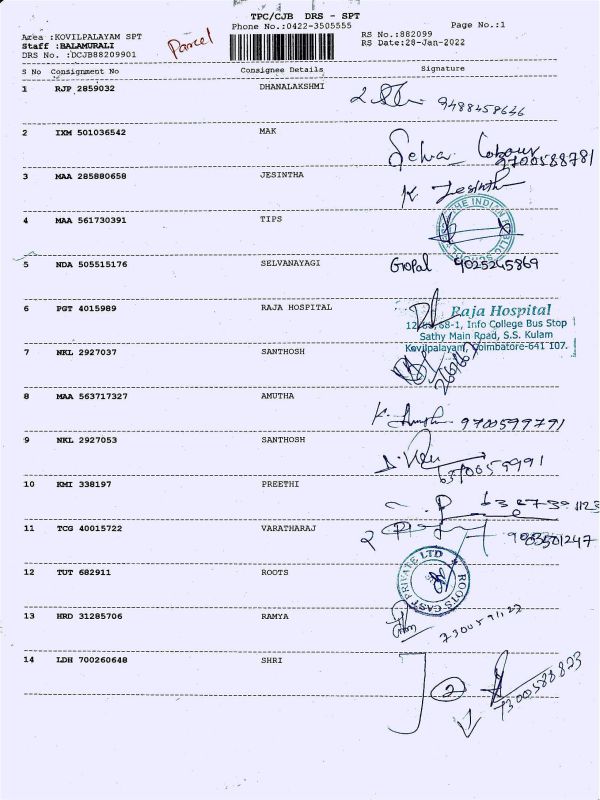 TPC/CJB DRS - SPT
Phone No.:0422-3505555
Page No.:1
Area :KOVILPALAYAM SPT
Staff :BALAMURALI
DRS No. :DCJB88209901
Parcel
RS No.:882099
RS Date:28-Jan-2022
S No Consignment No Consignee Details Signature
1 RJP 2859032 DHANALAKSHMI 9488458646
2 IXM 501036542 MAK Selva 9700588781
3 MAA 285880658 JESINTHA K Jesintha
4 MAA 561730391 TIPS THE INDIAN PUBLIC
5 NDA 505515176 SELVANAYAGI Gopal 9025245869
6 PGT 4015989 RAJA HOSPITAL Raja Hospital
68-1, Info College Bus Stop
Sathy Main Road, S.S. Kulam
Kovilpalayam, Coimbatore-641 107.
7 NKL 2927037 SANTHOSH
8 MAA 563717327 AMUTHA 9700599791
9 NKL 2927053 SANTHOSH
10 KMI 338197 PREETHI
11 TCG 40015722 VARATHARAJ
12 TUT 682911 ROOTS ROOTS CAST PRIVATE LTD
13 HRD 31285706 RAMYA
14 LDH 700260648 SHRI 2 7300588823